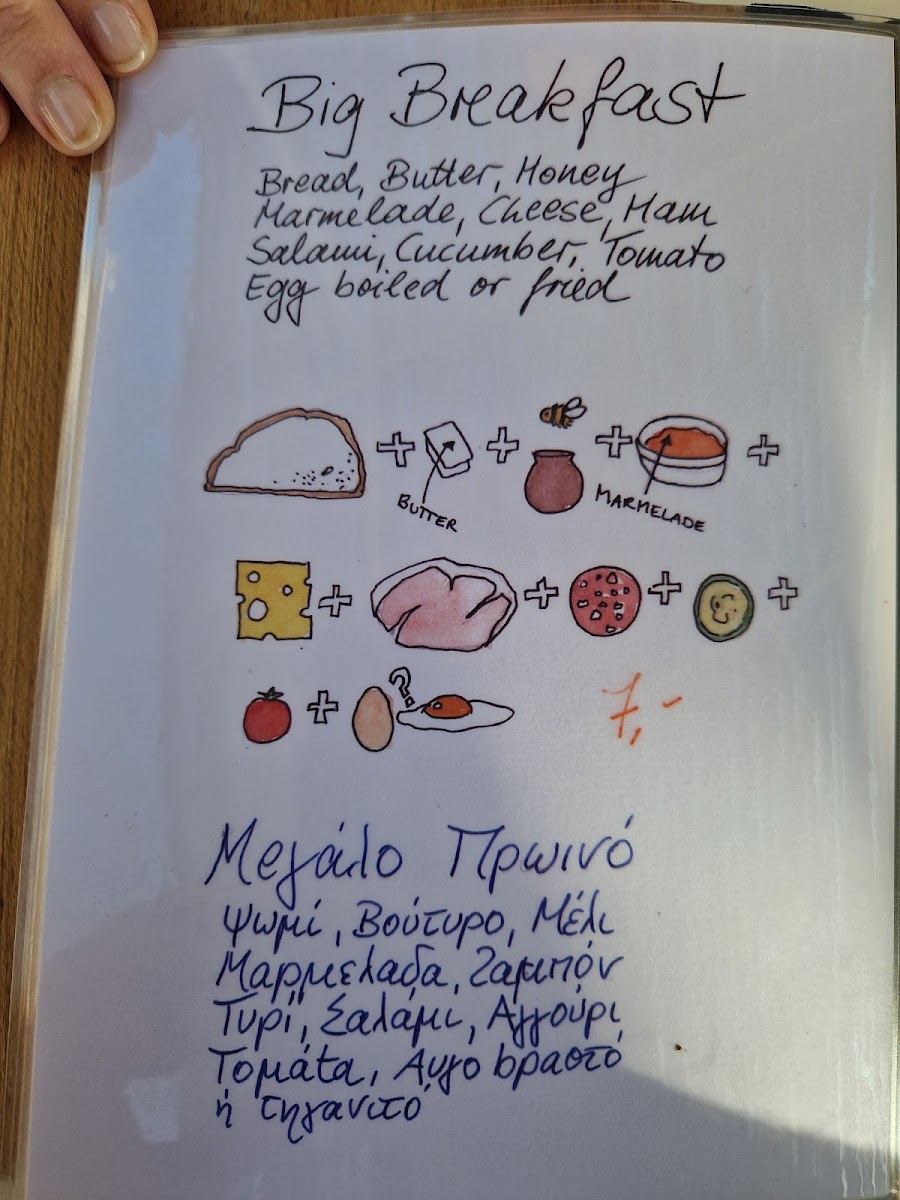 Big Breakfast
Bread, Butter, Honey
Marmelade, Cheese, Ham
Salami, Cucumber, Tomato
Egg boiled or fried
+ + + +
BUTTER MARMELADE
+ + + +
+ ?
7,-
Μεγάλο Πρωινό
Ψωμί, Βούτυρο, Μέλι
Μαρμελαδα, Ζαμπόν
Τυρϊ, Σαλάμι, Αγγούρι
Τομάτα, Αυγο bραστό
ή τηγανιτό